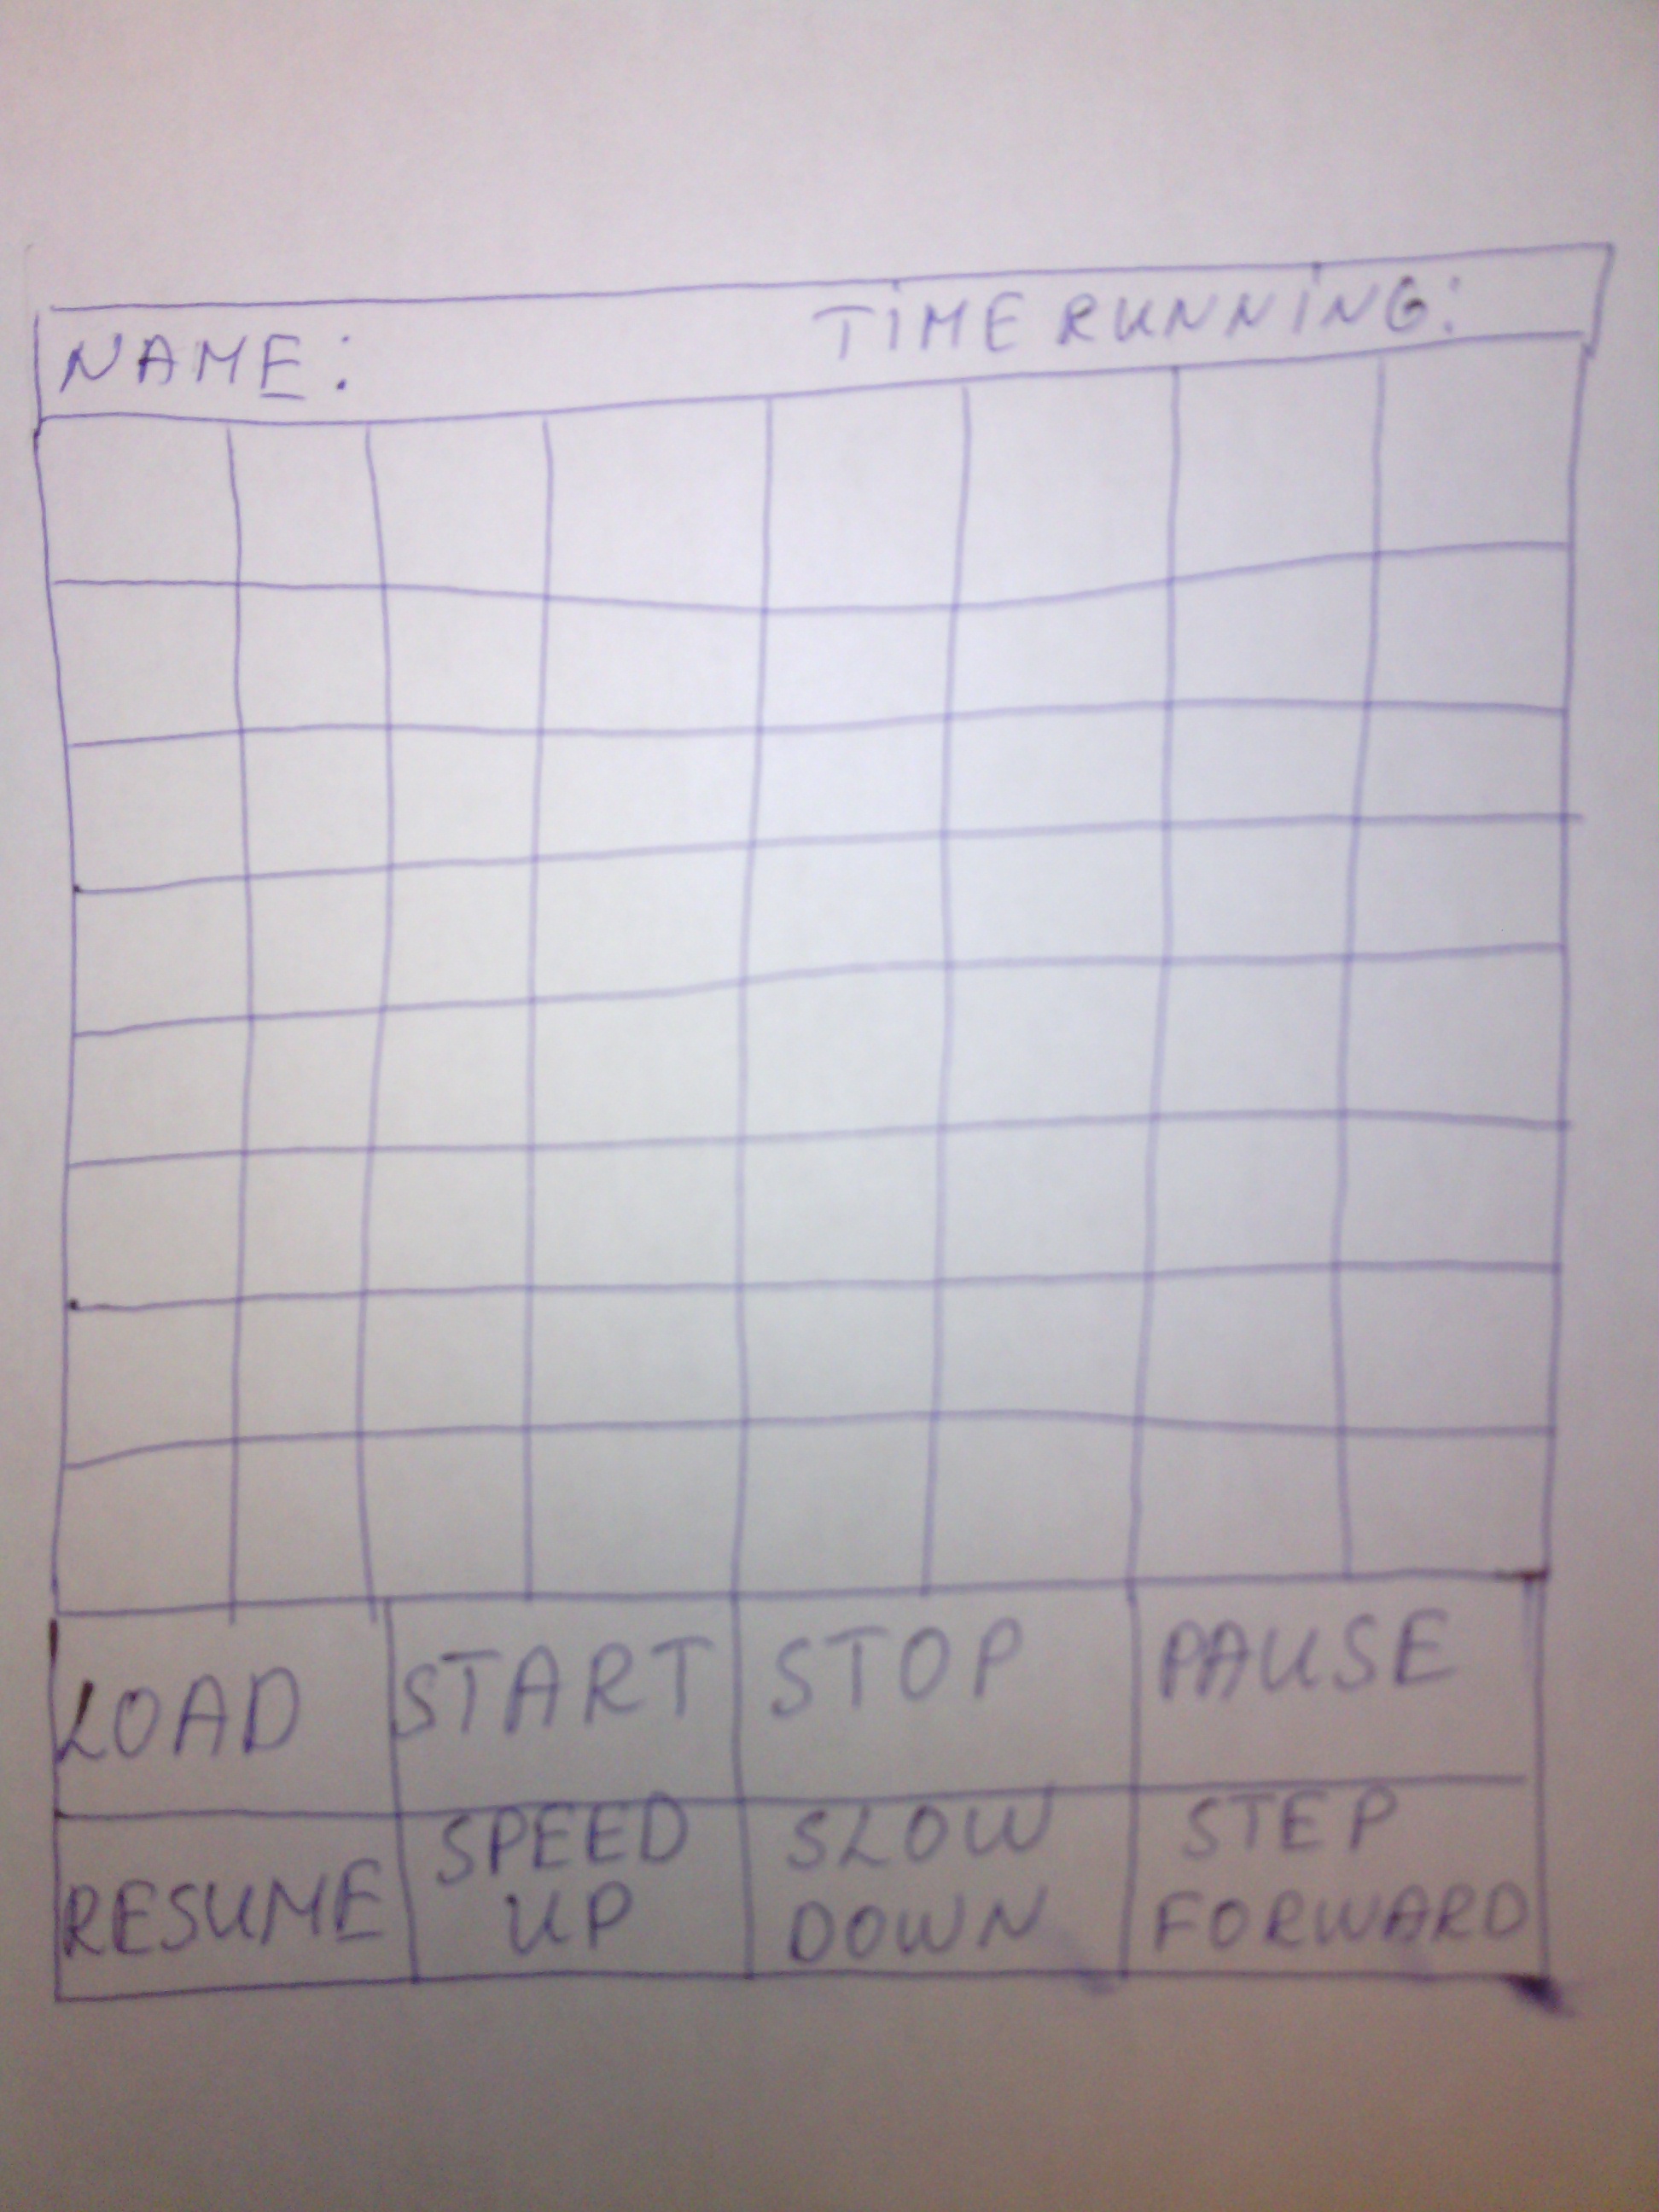 NAME: TIME RUNNING:
LOAD START STOP PAUSE
RESUME SPEED UP SLOW DOWN STEP FORWARD